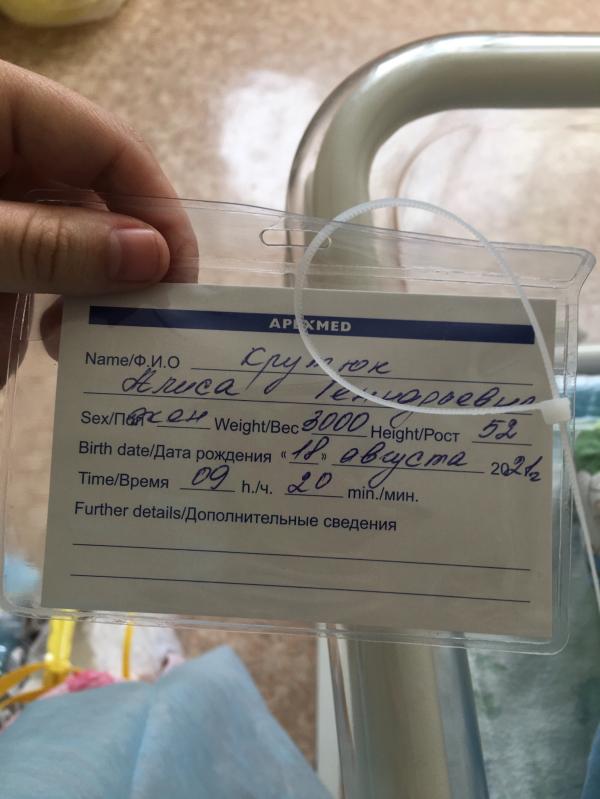 APEXMED
Name/Ф.И.О Крутюк
Алиса Геннадьевна
Sex/Пол жен Weight/Вес 3000 Height/Рост 52
Birth date/Дата рождения «18» августа 2021г
Time/Время 09 h./ч. 20 min./мин.
Further details/Дополнительные сведения